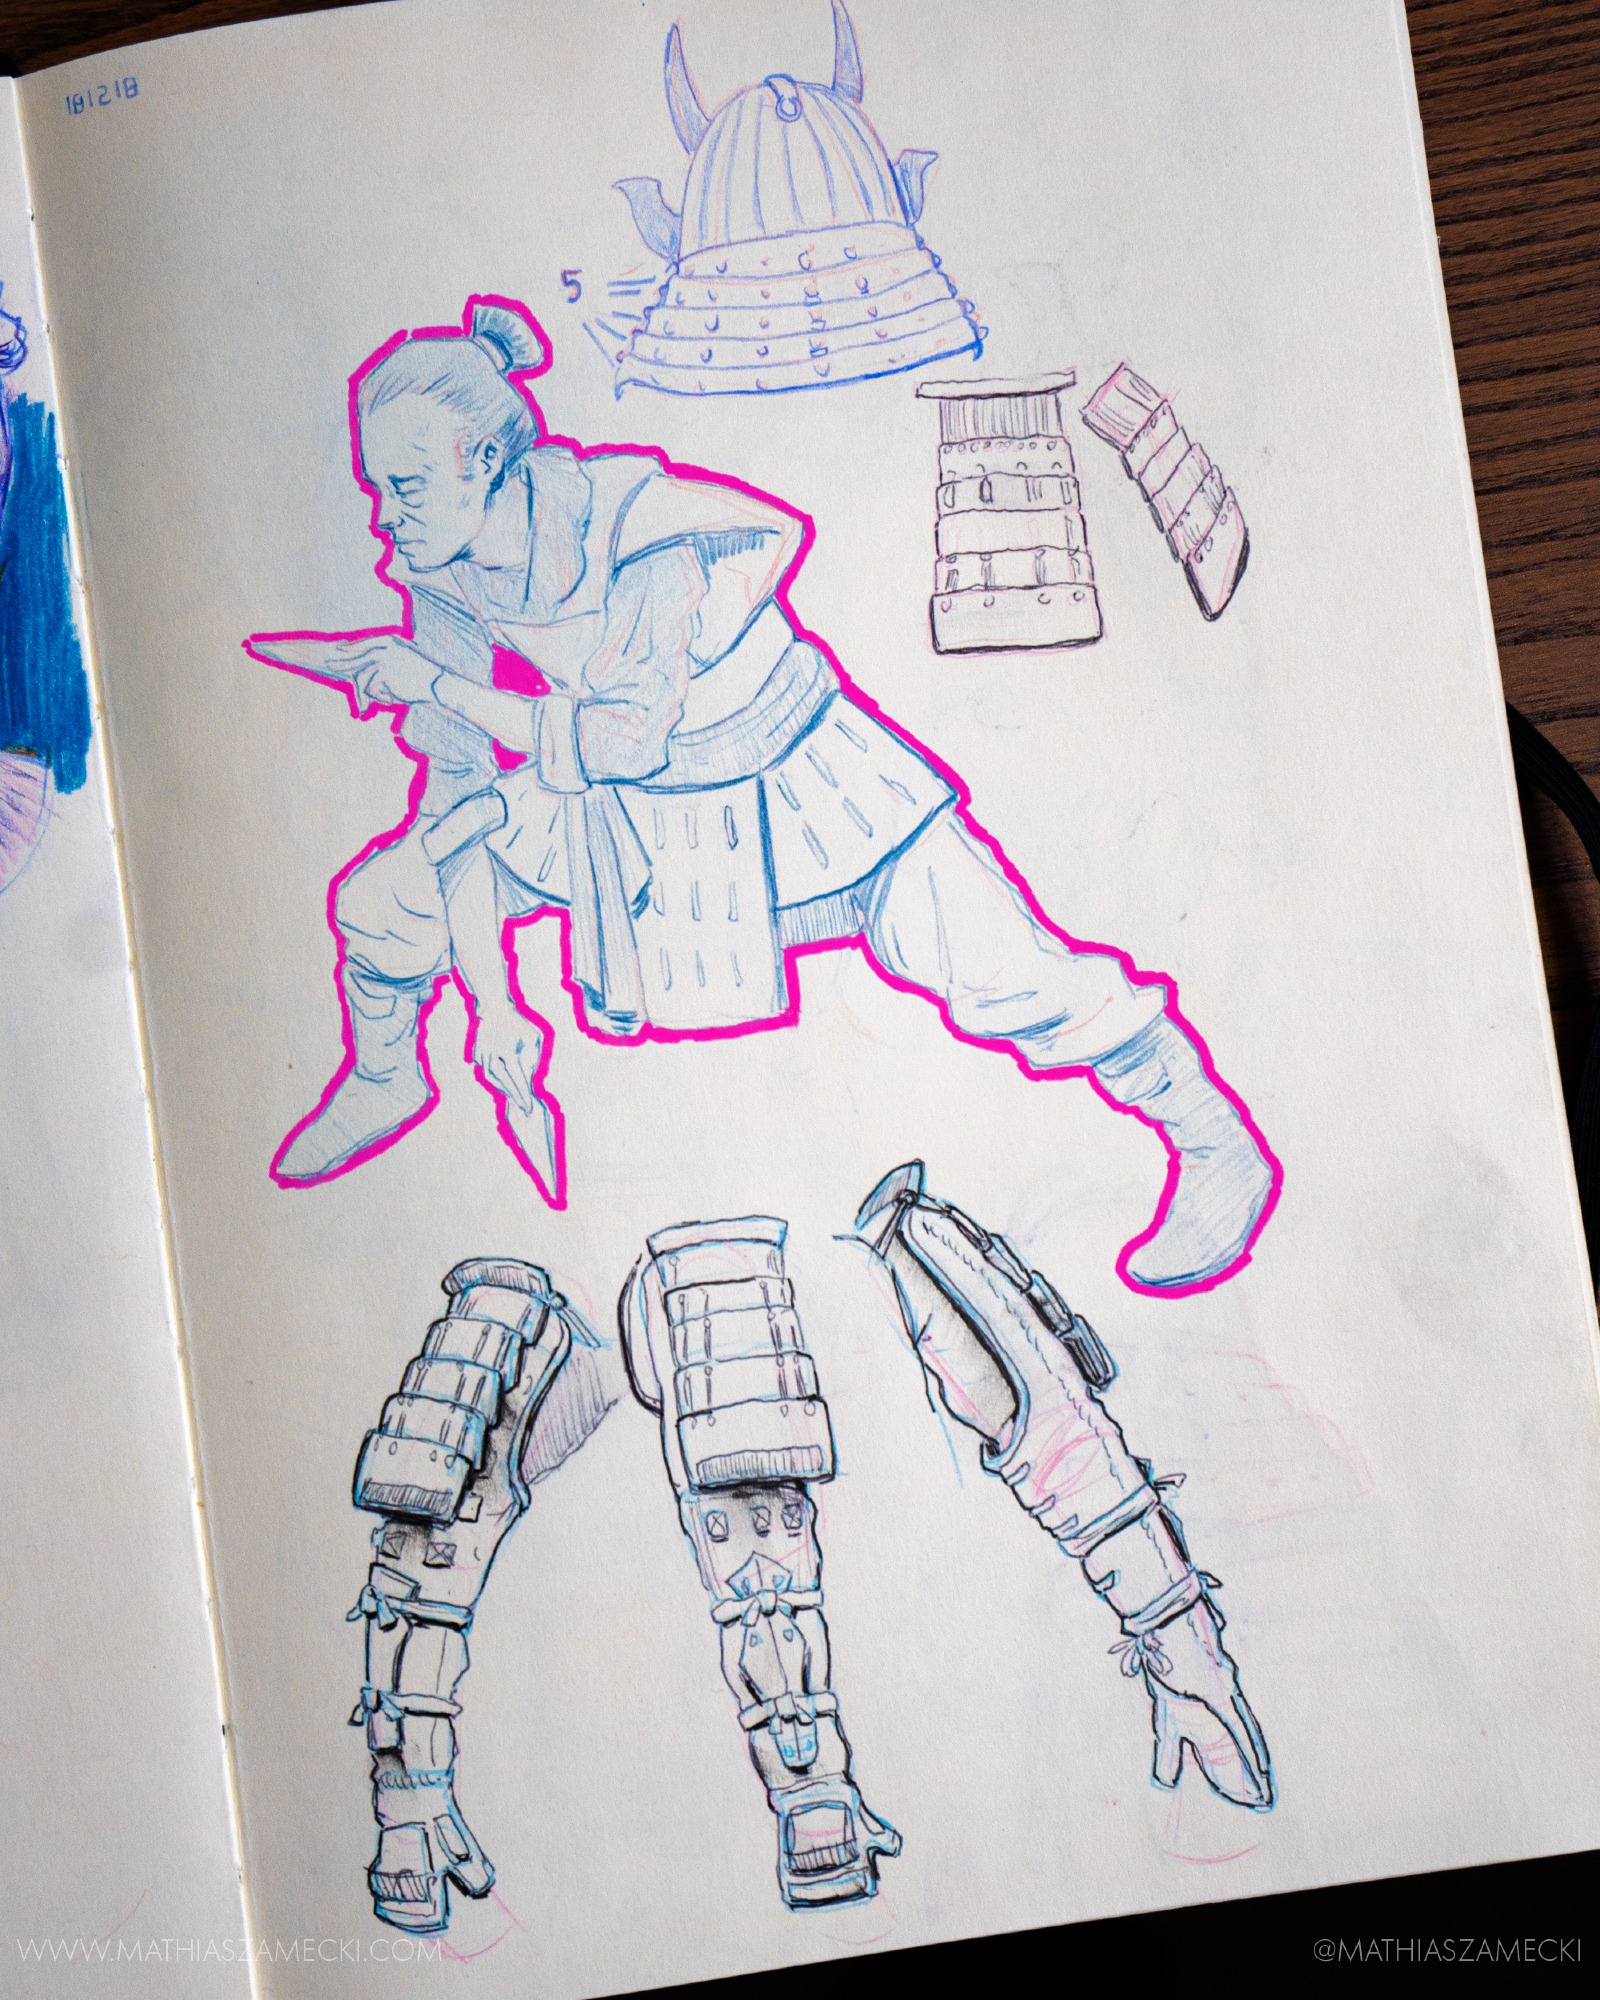 181218
5
WWW.MATHIASZAMECKI.COM
@MATHIASZAMECKI